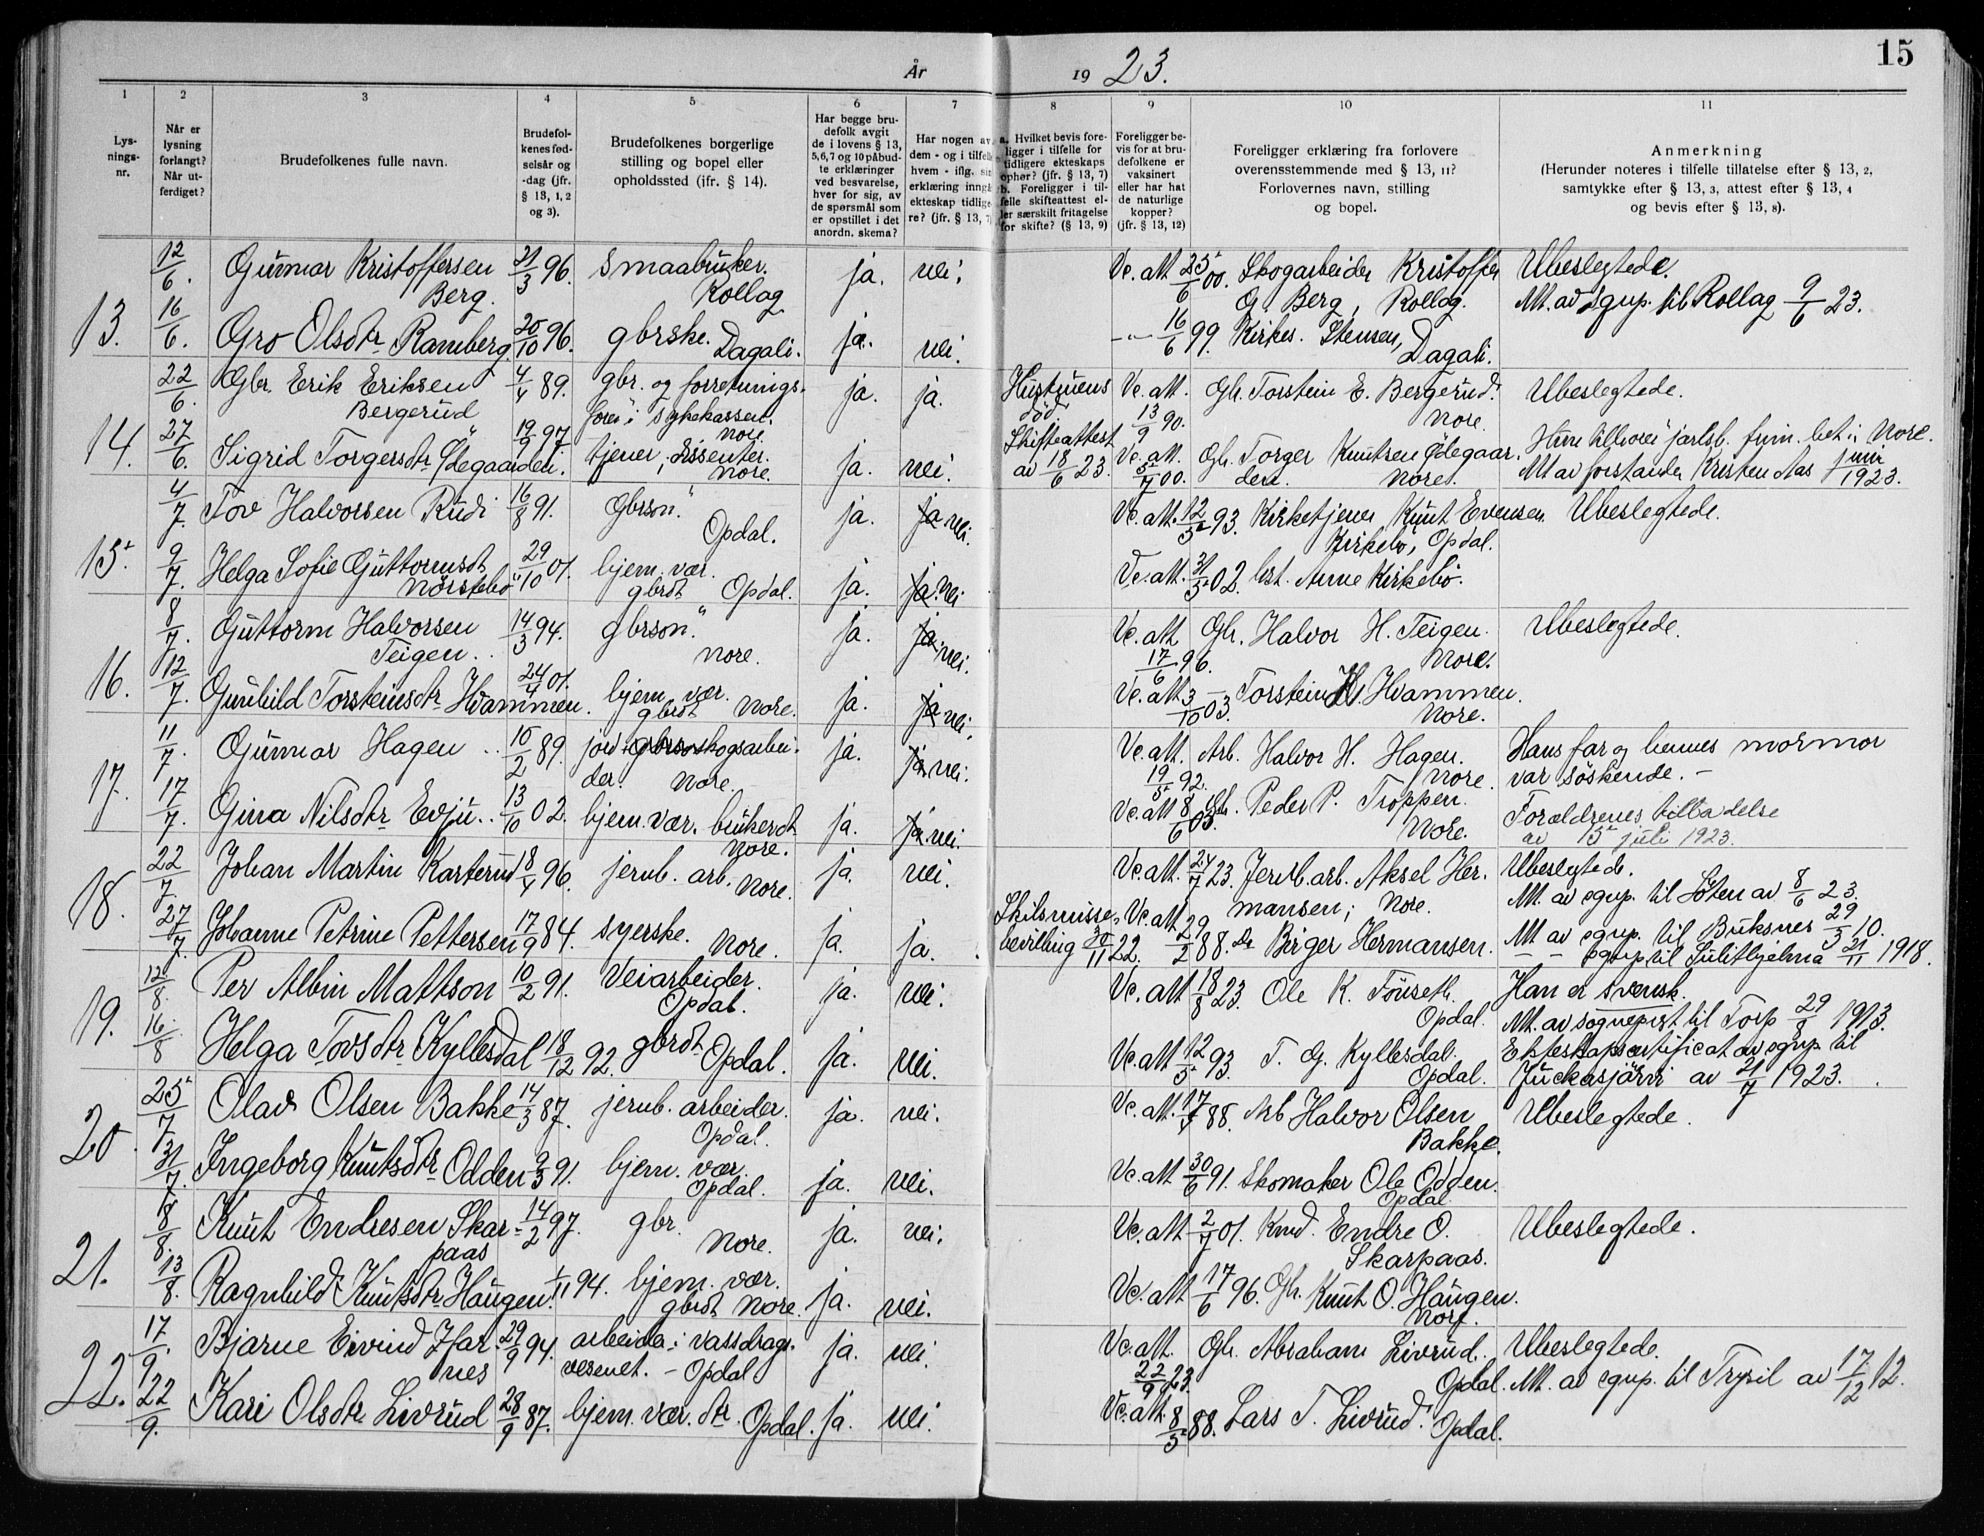 År 19 23. 15
1 2 3 4 5 6 7 8 9 10 11
Lys-
nings-
nr.
Når er
lysning
forlangt?
Når ut-
ferdiget?
Brudefolkenes fulle navn.
Brudefol-
kenes fød-
selsår og
-dag (jfr.
§ 13, 1, 2
og 3).
Brudefolkenes borgerlige
stilling og bopel eller
opholdssted (ifr. § 14).
Har begge bru-
defolk avgit
de i lovens § 13,
5, 6, 7 og 10 påbud-
te erklæringer
ved besvarelse,
hver for sig, av
de spørsmål som
er opstillet i det
anordn. skema?
Har nogen av
dem - og i tilfelle
hvem - iflg. sin
erklæring inngå
ekteskap tidlige-
re? (jfr. § 13, 7)
a. Hvilket bevis fore-
ligger i tilfelle for
tidligere ekteskaps
ophør? (jfr. § 13, 7)
b. Foreligger i til-
felle skifteattest el-
ler særskilt fritagelse
for skifte? (§ 13, 9)
Foreligger be-
vis for at bru-
defolkene er
vaksinert
eller har hat
de naturlige
kopper?
(jfr. § 13, 12)
Foreligger erklæring fra forlovere
overensstemmende med § 13, 11?
Forlovernes navn, stilling
og bopel.
Anmerkning
(Herunder noteres i tilfelle tillatelse efter § 13, 2,
samtykke efter § 13, 3, attest efter § 13, 4
og bevis efter § 13, 8).
13. 12/6. Gunnar Kristoffersen 21/3 96. Smaabruker. ja. nei. Vc. att 25/6 00. Skogarbeider Kristoffer Ubeslegtede.
Berg. Kollag G. Berg, Rollag. Att. av sgnp. til Rollag 9/6 23.
16/6. Gro Olsdtr Ramberg 20/10 96. gbrske. Dagali. ja. nei. -"- 16/6 99. Kirkes. Stensen, Dagali.
14. 22/6. Gbr. Erik Eriksen 4/4 89. gbr. og forretnings- ja. ja. Hustruens Vc. att. Gbr. Torstein E. Bergerud. Ubeslegtede.
Bergerud fører i sykekassen. Nore død 13/9 90. Nore.
27/6. Sigrid Torgersdtr Ødegaarden. 19/9 97 tjener, dissenter. Nore. ja. nei. Skifteattest av 18/6 23. Vc. att. 5/7 00. Gbr. Torger Knutsen Ødegaar- Hun tilhører jarlsb. frim. bet. i Nore.
den. Nore. Att av forstander Kristen Aas juni 1923.
15. 4/7. Tov Halvorsen Rudi 16/8 91. Gbrson. Opdal. ja. ja nei. Vc. att. 12/5 93. Kirketjener Knut Evensen Ubeslegtede.
Kirkebø, Opdal.
9/7. Helga Sofie Guttormsdt 29/10 01. hjem. vær. ja. ja. nei Vc. att. 31/5 02. Anne Kirkebø.
Nørstebø gbrdt Opdal.
16. 8/7. Guttorm Halvorsen 14/3 94. gbrson. ja. ja. nei. Vc. att Gbr. Halvor H. Teigen. Ubeslegtede.
Teigen. Nore. 17/6 96. Nore.
12/7. Gunhild Torsteinsdtr Hvammen. 24/4 01. hjem. vær. gbrdt Nore. ja. ja nei. Vc. att 3/10 03. — Torstein H. Hvammen.
Nore.
17. 11/7 Gunnar Hagen.. 10/2 89. jord- gbrson skogsarbei- ja. ja nei. Vc. att. Arb. Halvor H. Hagen. Hans far og hennes mormor
der. Nore. 19/5 92. Nore. var søskende. —
17/7. Gina Nilsdtr Evju.. 13/10 02. hjem. vær. brukerdt ja. ja. nei. Vc. att 8/6 03. Gbr. Peder P. Troppen. Forældrenes tilladelse
Nore. Nore. av 15 juli 1923.
18. 22/7 Johan Martin Karterud 18/4 96. jernb. arb. Nore. ja. nei. Vc. att. 24/7 23. Jernb. arb. Aksel Her- Ubeslegtede.
mansen; Nore. Att. av sgnp. til Løten av 8/6 23.
27/7 Johanne Petrine Pettersen 17/9 84. syerske. Nore. ja. ja. Skilsmisse- bevilling 20/11 22. Vc. att 29/2 88. Do Birger Hermansen. Att av sgnp. til Buksnes 29/3 10.
— — sgnp til Sulitjelma 21/11 1918.
19. 12/8. Per Albin Mattson 10/2 91. Veiarbeider. Opdal. ja. nei. Vc. att 18/8 23. Ole K. Fønseth. Opdal. Han er svensk.
Att. av sogneprst til Torp 29/8 1913.
16/8 Helga Tovsdtr Kyllesdal 18/12 92. gbrdt Opdal. ja. nei. Vc. att 12/5 93. T. G. Kyllesdal. Opdal. Ekteskapscertificat av sgnp til
Juckasjärvi av 21/7 1923.
20. 25/7 Olav Olsen Bakke 14/3 87. jernb. arbeider. Opdal. ja. nei. Vc. att. 17/5 88. Arb Halvor Olsen Ubeslegtede.
Bakke.
31/7. Ingeborg Knutsdtr Odden 9/3 91. hjem. vær. Opdal. ja. nei. Vc. att 30/6 91. Skomaker Ole Odden.
Opdal
21. 8/8. Knut Endresen Skar- 14/2 97. gbr. Nore. ja. nei. Vc. att 2/7 01. Endre O. Ubeslegtede.
paas Skarpaas.
13/8. Ragnhild Knutsdtr Haugen. 1/11 94. hjem. vær. gbrdt Nore. ja. nei. Vc. att 17/6 96. Gbr. Knut O. Haugen.
Nore.
22. 17/9. Bjarne Eivind Har- 29/9 94. arbeider i vassdrags- ja. nei. Vc. att. Gbr. Abraham Livrud. Ubeslegtede.
nes vesenet. — Opdal 22/9 23. Opdal. Att. av sgnp. til Trysil av 17/12 12.
22/9. Kari Olsdtr Livrud 28/9 87. hjem. vær. dtr. Opdal. ja. nei. Vc. att. 8/5 88. Lars T. Livrud. Opdal.